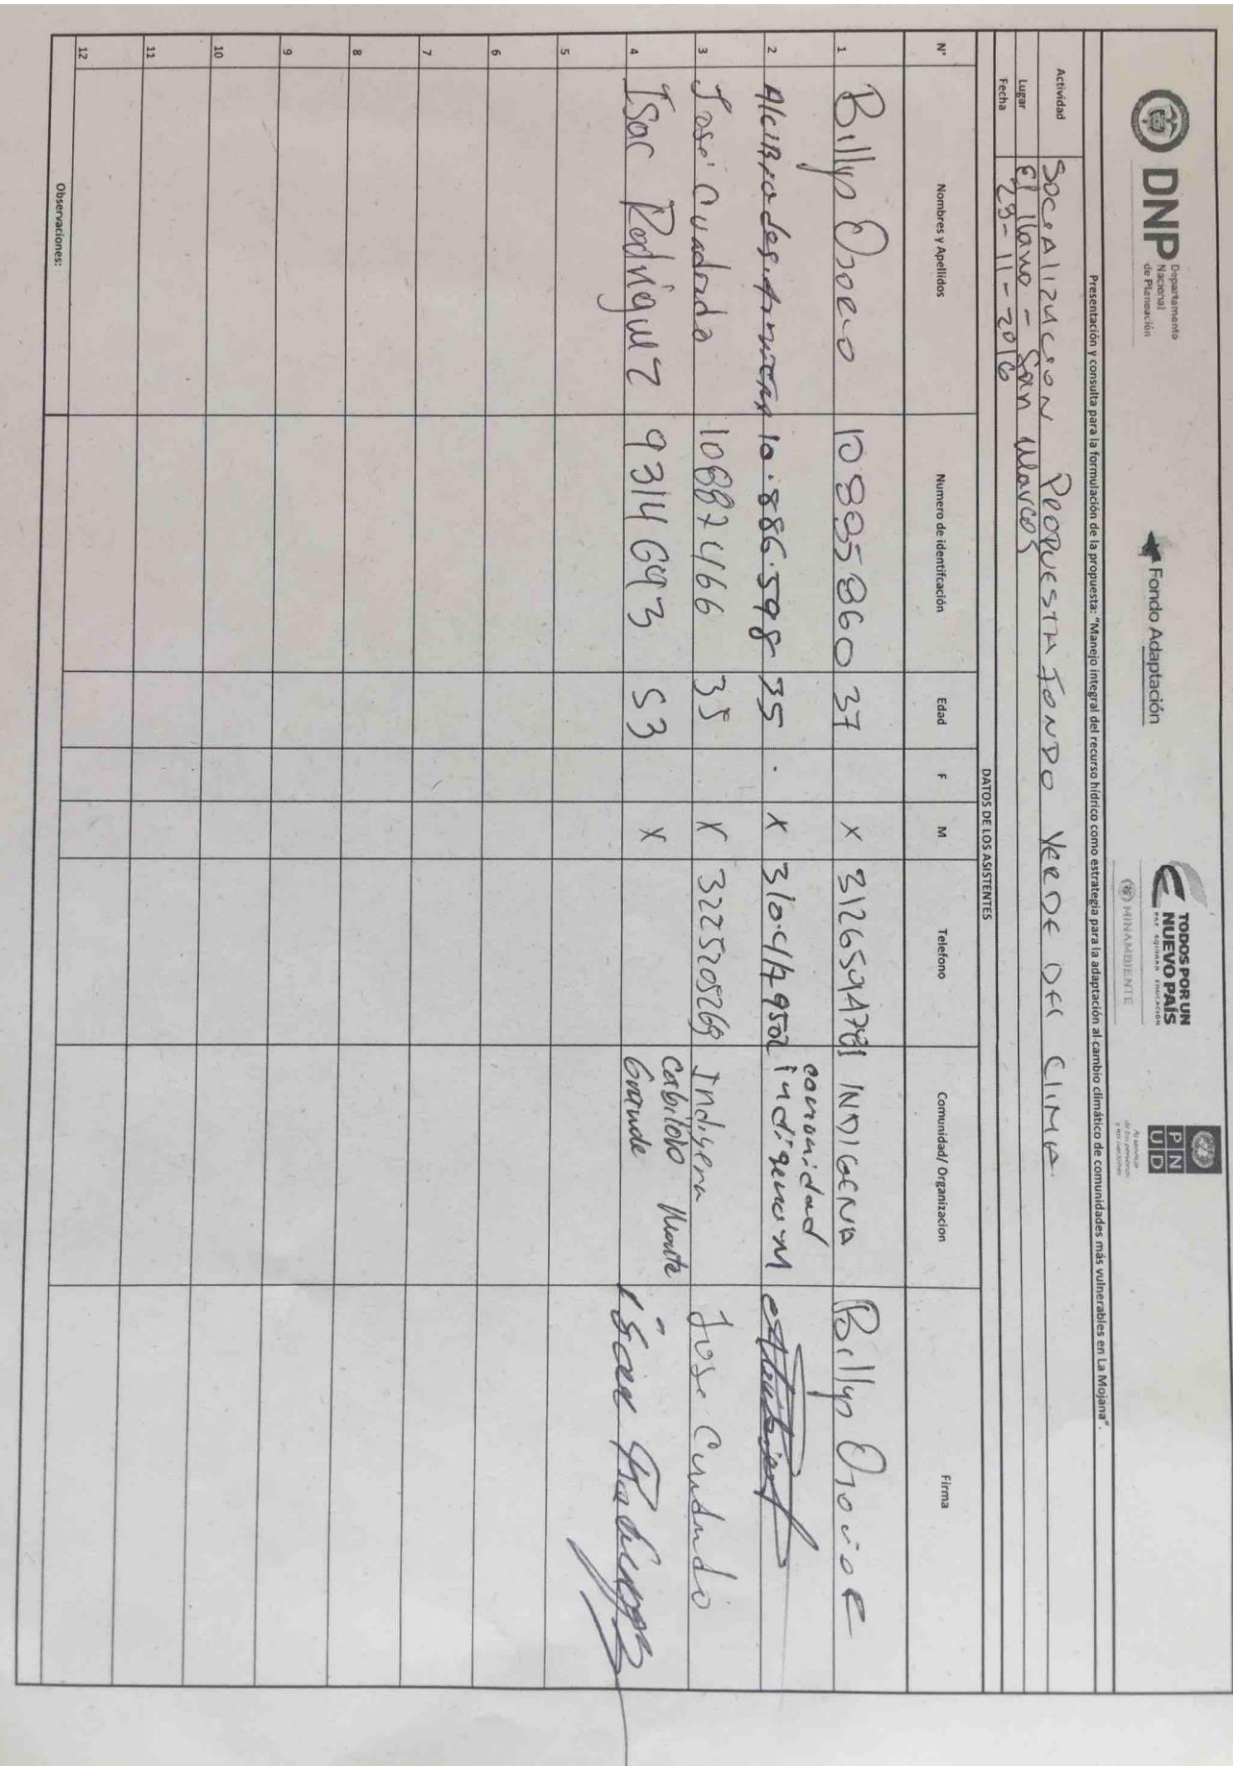 DNP Departamento
Nacional
de Planeación
Fondo Adaptación
TODOS POR UN
NUEVO PAÍS
PAZ EQUIDAD EDUCACIÓN
MINAMBIENTE
PNUD
Al servicio
de las personas
y las naciones
Presentación y consulta para la formulación de la propuesta: "Manejo integral del recurso hídrico como estrategia para la adaptación al cambio climático de comunidades más vulnerables en La Mojana".
Actividad SoceAlizucion Propuesta Fondo Verde Del Clima.
Lugar El llano - San Marcos
Fecha 23-11-2016
DATOS DE LOS ASISTENTES
N° Nombres y Apellidos Numero de identifcación Edad F M Telefono Comunidad/ Organizacion Firma
1 Billyn Osorio 10885860 37 X 3126594781 INDIGENA Billyn Osorio R
2 10.886.598 35 . X comunidad
3 José Cuadrado 106874166 35 X 3225205269 Indigena Jose Cuadrado
4 Isac Rodriguez 9314693 53 X Cabildo Monte
Grande Isac Rodriguez
5
6
7
8
9
10
11
12
Observaciones: